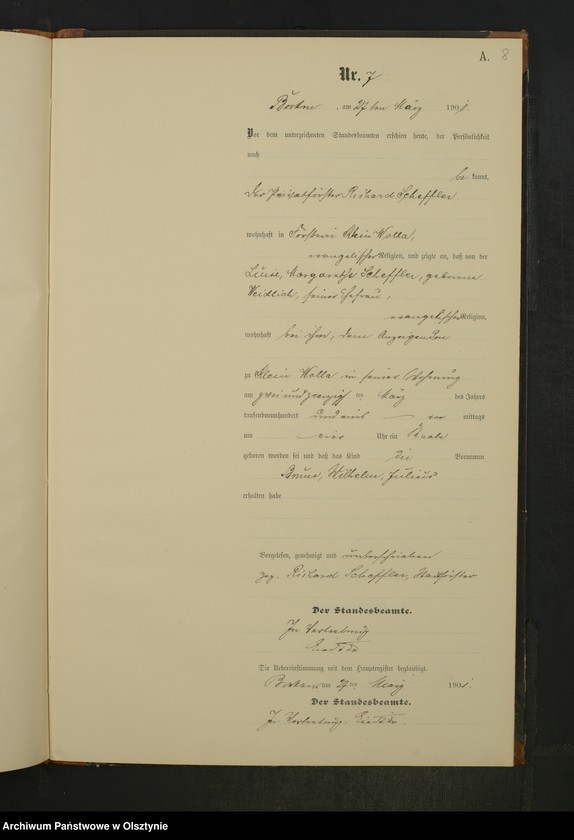 A. 8
Nr. 7
Borken, am 27ten März 1901.
Vor dem unterzeichneten Standesbeamten erschien heute, der Persönlichkeit
nach
be kannt,
der Privatförster Richard Scheffler
wohnhaft in Försterei Klein Wolla,
evangelischer Religion, und zeigte an, daß von der
Luise, Margarethe Scheffler, geborene
Weidlich, seiner Ehefrau,
evangelischer Religion,
wohnhaft bei ihm, dem Anzeigenden
zu Klein Wolla in seiner Wohnung
am zwei und zwanzigsten März des Jahres
tausendneunhundert und eins vor mittags
um vier Uhr ein Knabe
geboren worden sei und daß das Kind die Vornamen
Bruno, Wilhelm, Julius
erhalten habe
Vorgelesen, genehmigt und unterschrieben
gez. Richard Scheffler,
Der Standesbeamte.
In Vertretung
Die Uebereinstimmung mit dem Hauptregister beglaubigt.
Borken am 27ten März 1901.
Der Standesbeamte.
In Vertretung.
Archiwum Państwowe w Olsztynie